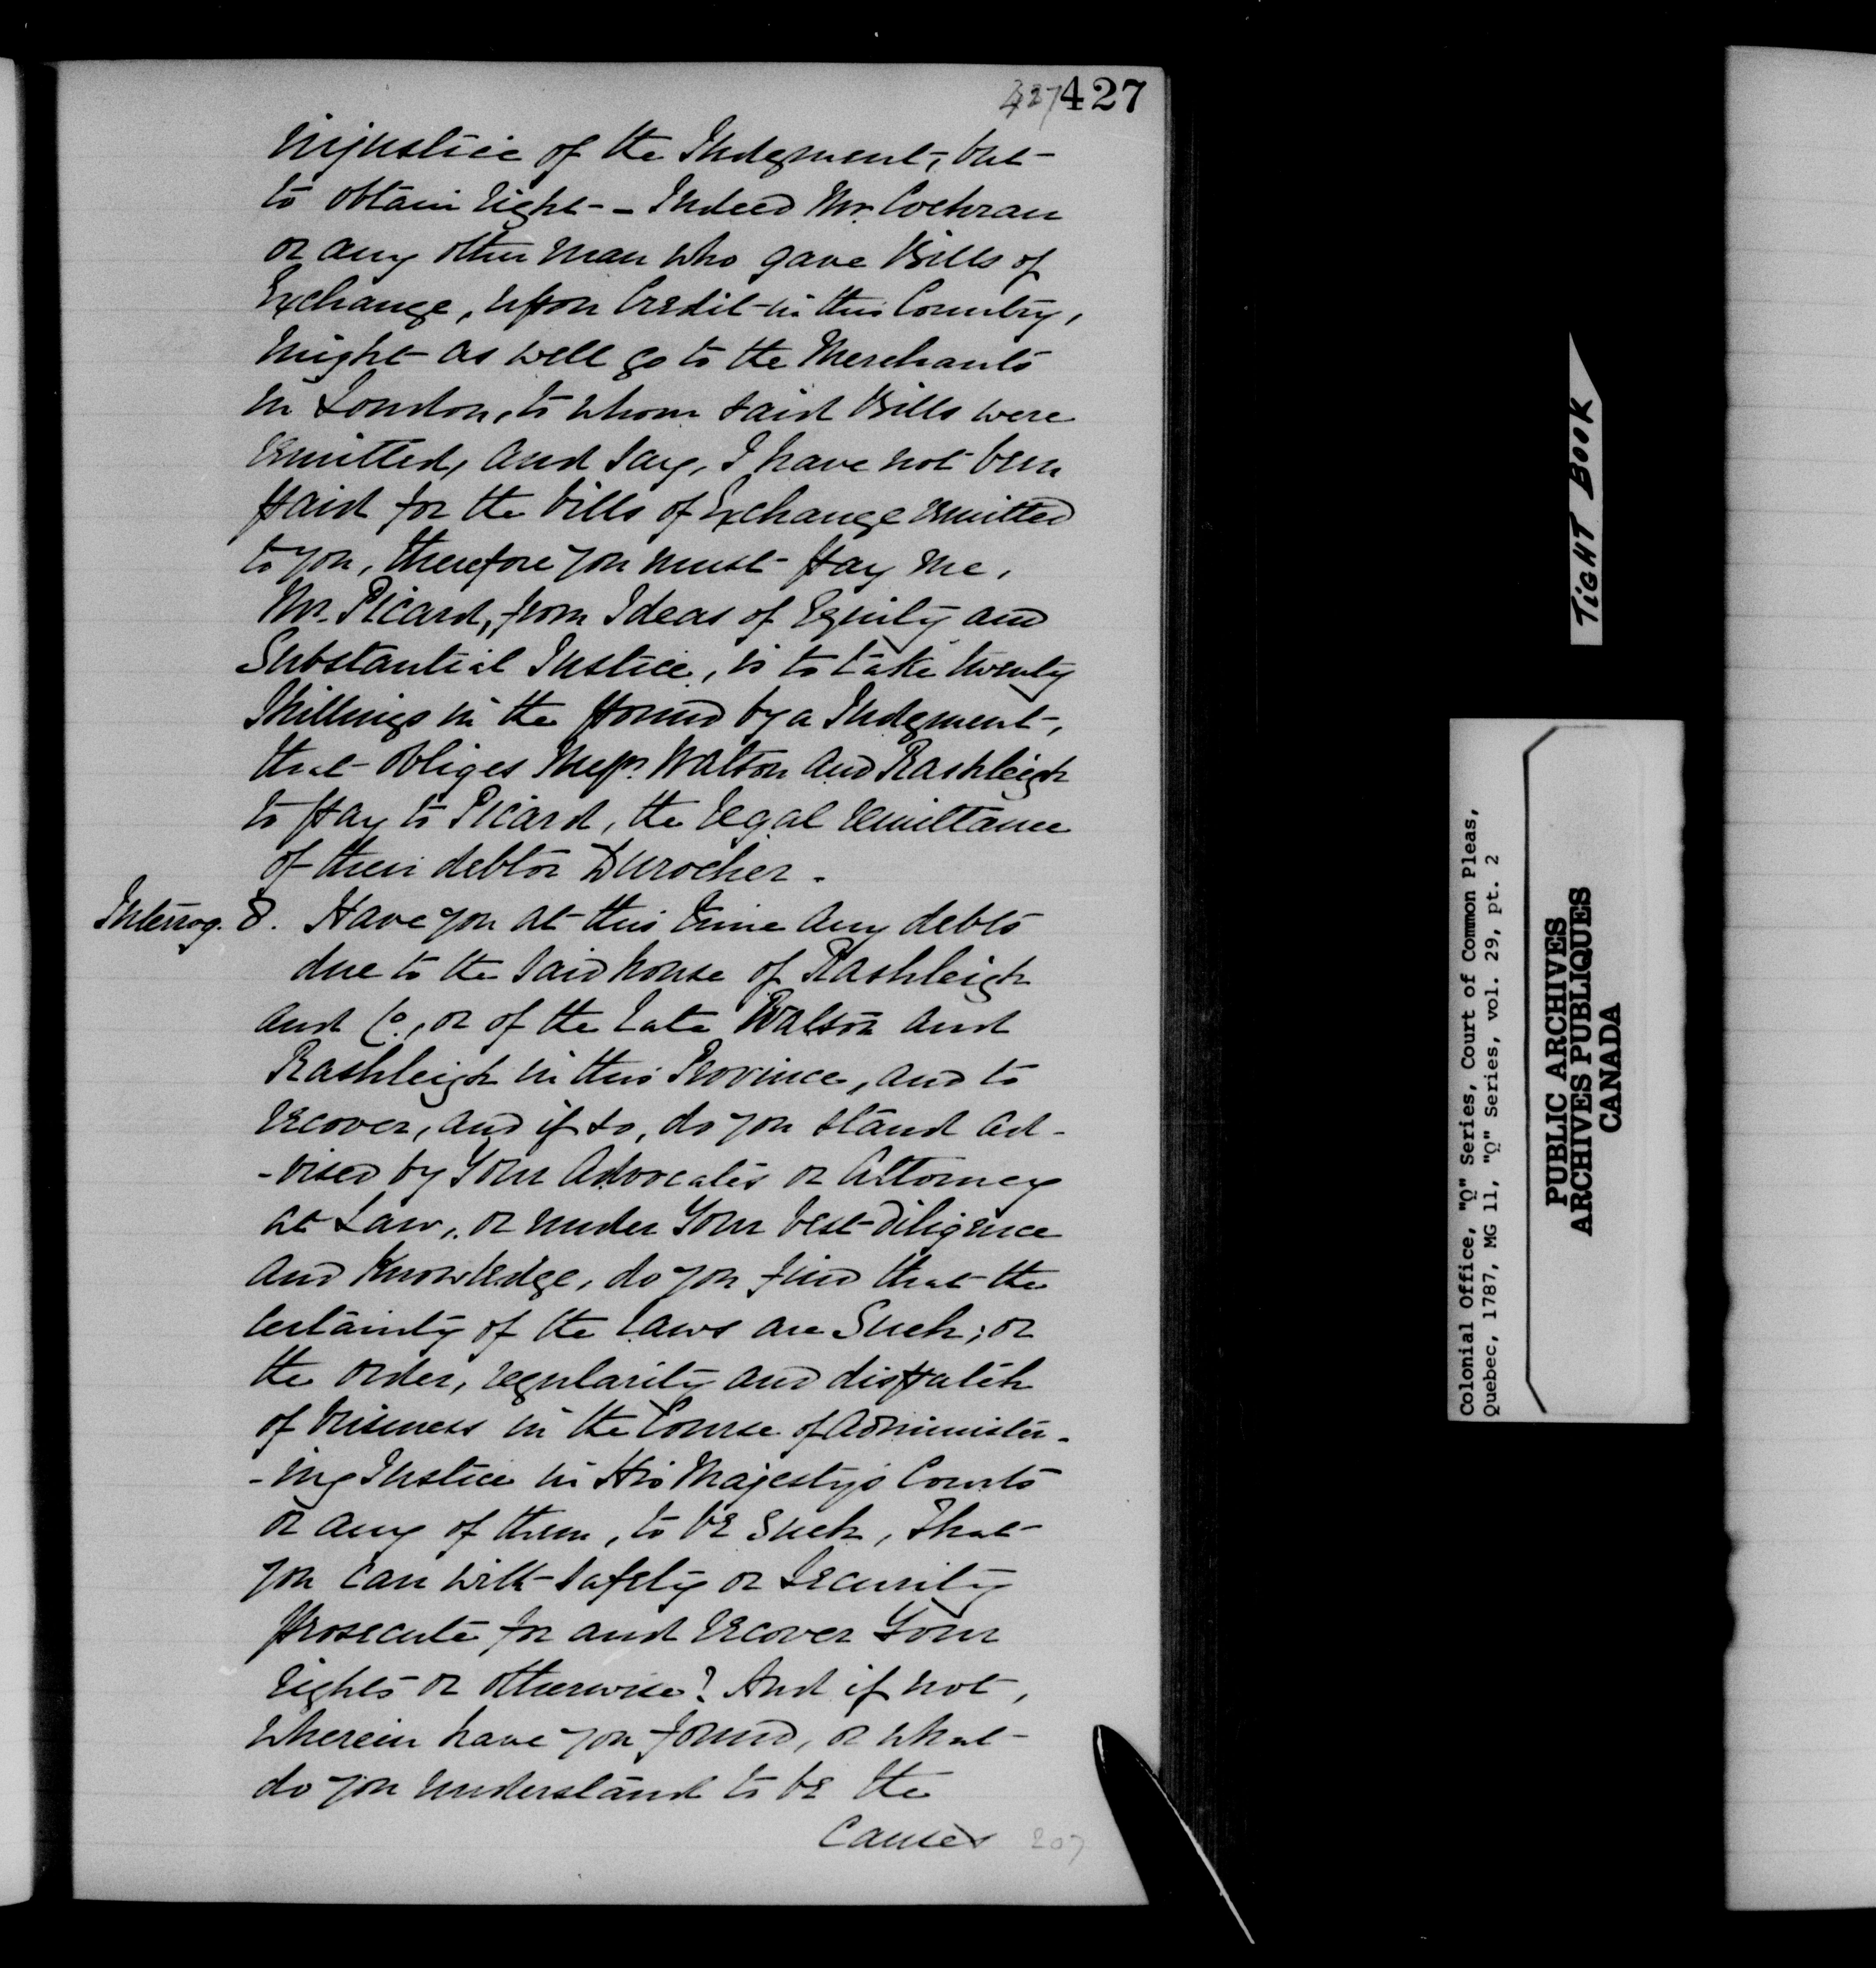 427 427
injustice of the Judgment, but
to obtain right - Indeed Mr. Cochran
or any other man who gave Bills of
Exchange, upon Credit in this Country,
might as well go to the Merchants
in London, to whom said Bills were
remitted, and say, I have not been
paid for the bills of Exchange remitted
to you, therefore you must pay me.
Mr. Picard, from Ideas of Equity and
Substantial Justice, is to take twenty
Shillings in the pound by a Judgment,
that obliges Messrs Watson and Rashleigh
to pay to Picard, the legal remittance
of their debtor Durocher.
Interrog. 8. Have you at this time any debts
due to the said house of Rashleigh
and Co., or of the late Watson and
Rashleigh in this Province, and to
recover, and if so, do you stand ad-
-vised by Your Advocates or Attorney
at Law, or under Your best diligence
and Knowledge, do you find that the
certainty of the laws are Such; or
the order, regularity and dispatch
of business in the Course of Administer-
-ing Justice in His Majesty's Courts
or any of them, to be such, That
you can with safety or Security
prosecute for and recover Your
rights or otherwise? And if not,
wherein have you found, or what
do you understand to be the
Causes 207
TIGHT BOOK
Colonial Office, "Q" Series, Court of Common Pleas,
Quebec, 1787, MG 11, "Q" Series, vol. 29, pt. 2
PUBLIC ARCHIVES
ARCHIVES PUBLIQUES
CANADA